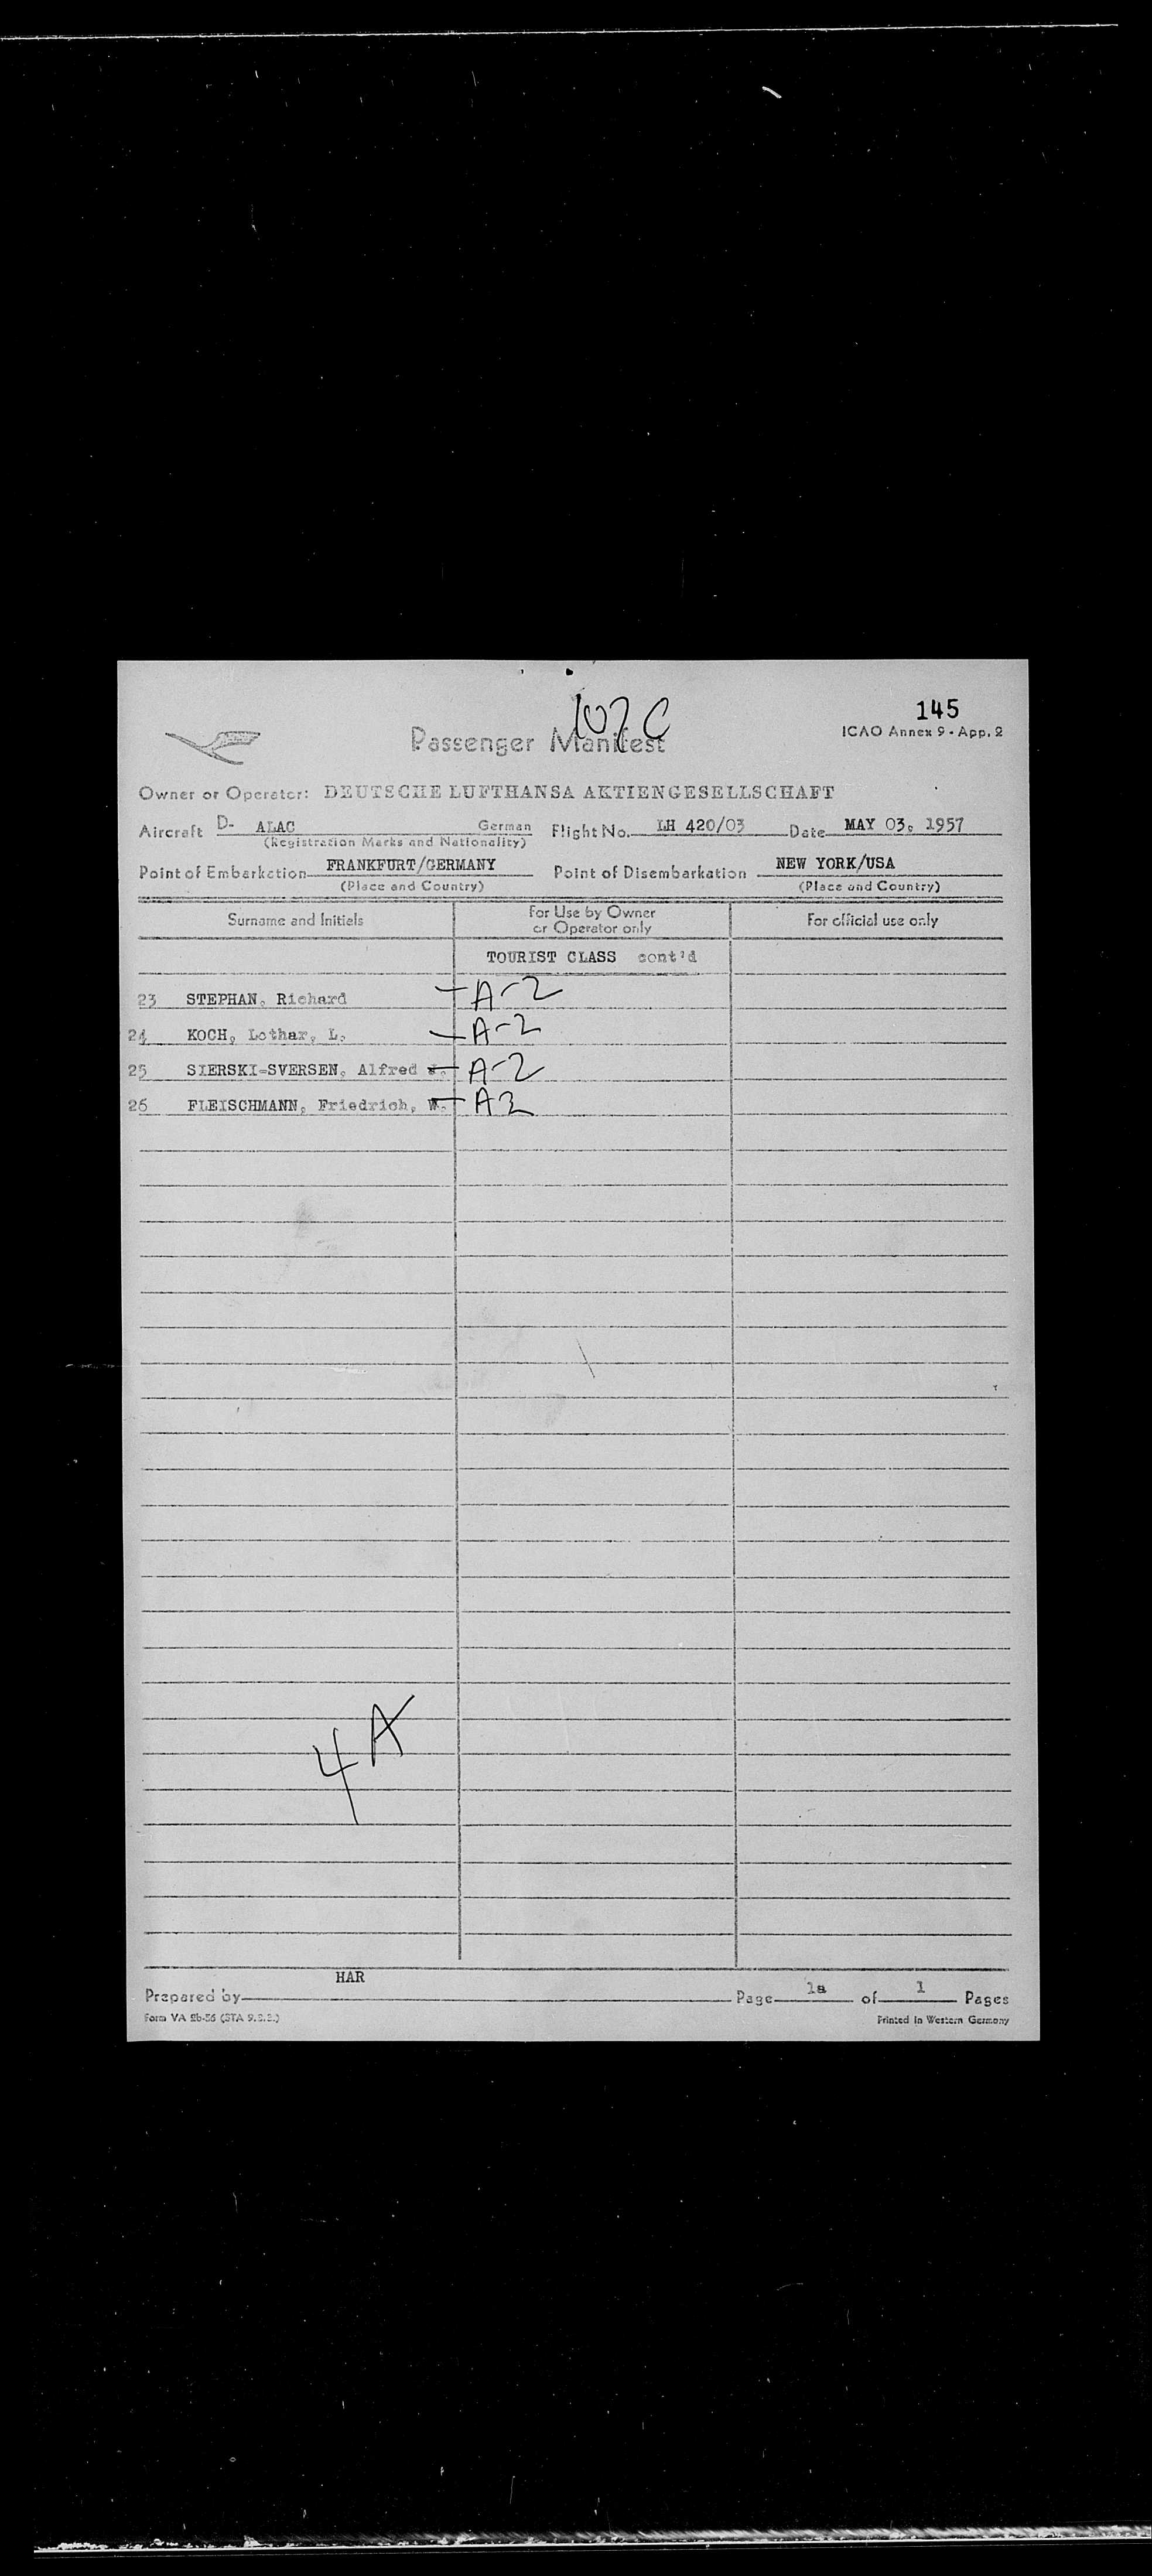 107 C
145
Passenger Manifest
ICAO Annex 9 - App. 2
Owner or Operator: DEUTSCHE LUFTHANSA AKTIENGESELLSCHAFT
Aircraft D- ALAC German Flight No. LH 420/03 Date MAY 03, 1957
(Registration Marks and Nationality)
Point of Embarkation FRANKFURT/GERMANY Point of Disembarkation NEW YORK/USA
(Place and Country) (Place and Country)
Surname and Initials For Use by Owner or Operator only For official use only
TOURIST CLASS cont'd
23 STEPHAN, Richard A-2
24 KOCH, Lothar, L. A-2
25 SIERSKI-SVERSEN, Alfred A-2
26 FLEISCHMANN, Friedrich, W. A 2
4 A
HAR
Prepared by Page 1a of 1 Pages
Form VA Printed in Western Germany